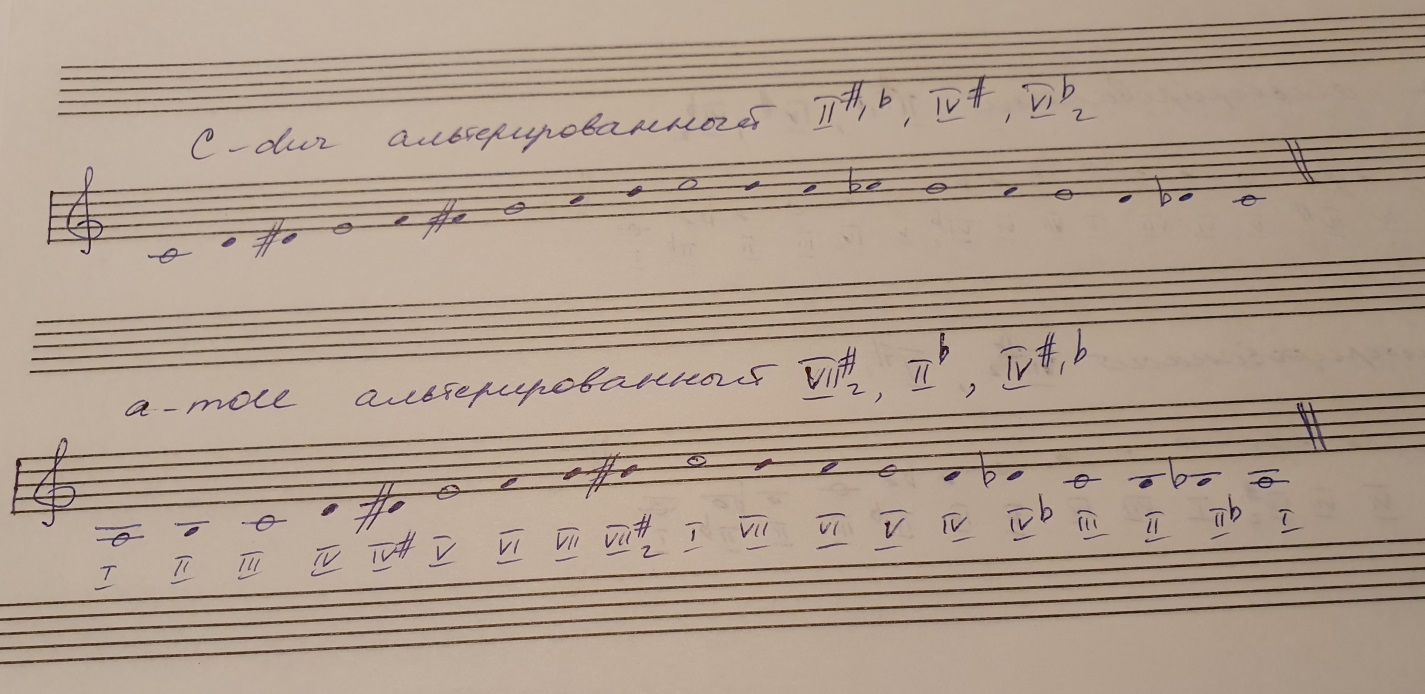 C-dur альтерированный II#,b, IV#, VIb г
a-moll альтерированный VII# г, IIb, IV#,b
I II III IV IV# V VI VII VII# г I VII VI V IV IVb III II IIb I